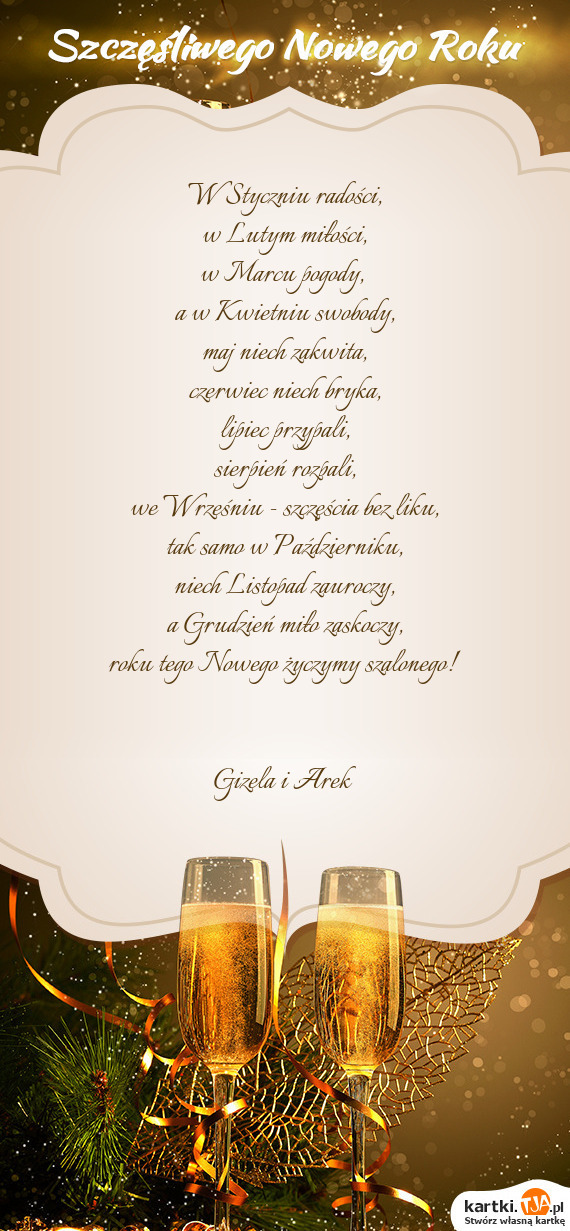 Szczęśliwego Nowego Roku
W Styczniu radości,
w Lutym miłości,
w Marcu pogody,
a w Kwietniu swobody,
maj niech zakwita,
czerwiec niech bryka,
lipiec przypali,
sierpień rozpali,
we Wrześniu - szczęścia bez liku,
tak samo w Październiku,
niech Listopad zauroczy,
a Grudzień miło zaskoczy,
roku tego Nowego życzymy szalonego!
Gizela i Arek
kartki.TJA.pl
Stwórz własną kartkę